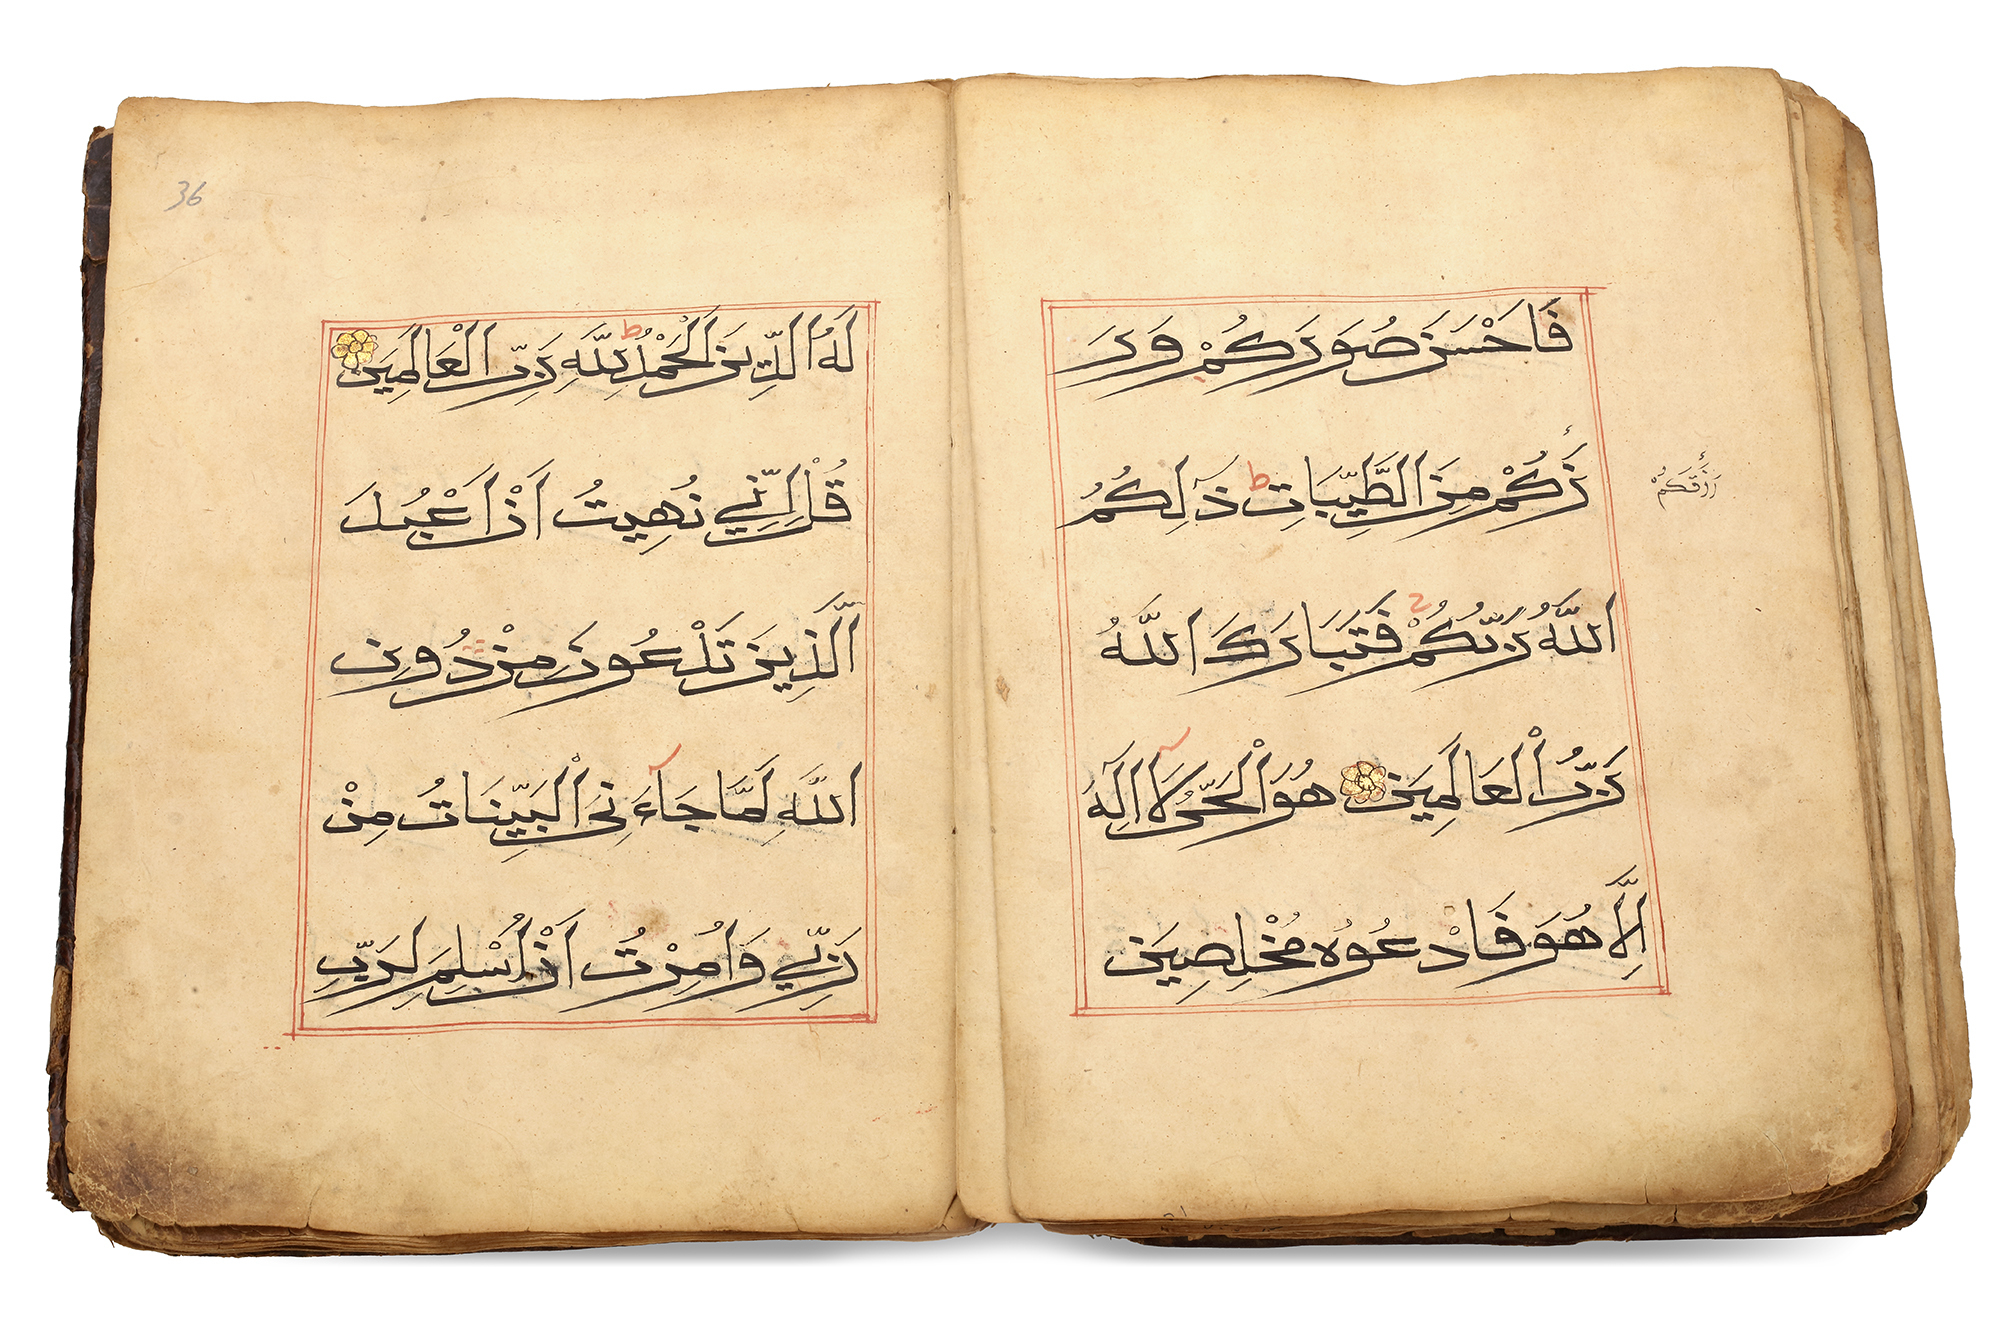 فَاَحْسَنَ صُوَرَكُمْ وَرَ
زَكُمْ مِنَ الطَّيِّبَاتِ ط ذَلِكُمُ
رَزَقَكُمْ
اللَّهُ رَبُّكُمْ ج فَتَبَارَكَ اللَّهُ
رَبُّ الْعَالَمِينَ هُوَ الْحَيُّ لَا اِلَهَ
اِلَّا هُوَ فَادْعُوهُ مُخْلِصِينَ
36
لَهُ الدِّينَ ط الْحَمْدُ لِلَّهِ رَبِّ الْعَالَمِينَ
قُلْ اِنِّي نُهِيتُ اَنْ اَعْبُدَ
الَّذِينَ تَدْعُونَ مِنْ دُونِ
اللَّهِ لَمَّا جَآءَنِيَ الْبَيِّنَاتُ مِنْ
رَبِّي وَاُمِرْتُ اَنْ اُسْلِمَ لِرَبِّ